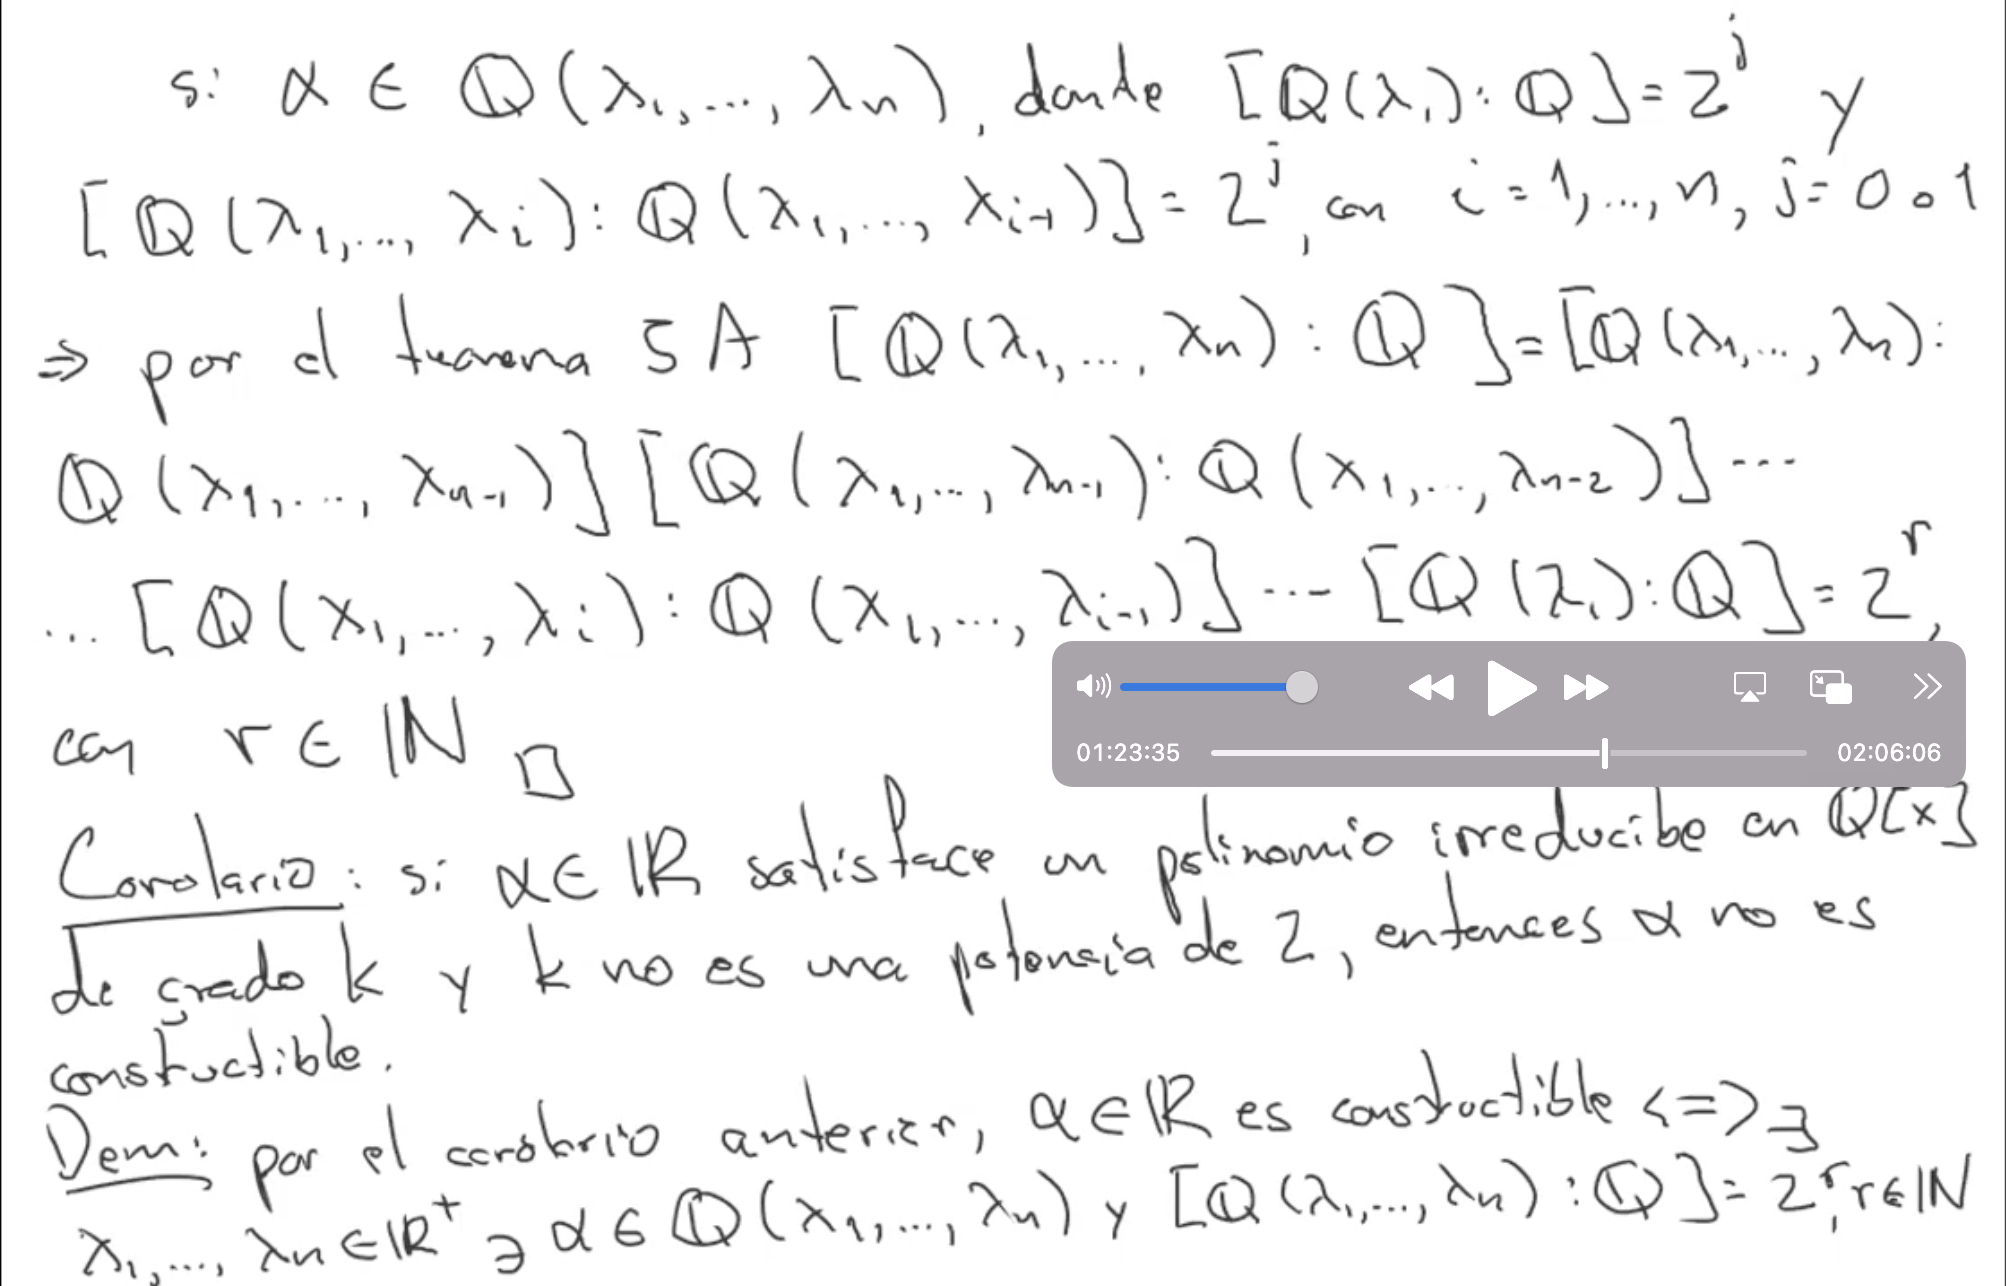 si α ∈ ℚ(λ₁,...,λn), donde [ℚ(λ₁):ℚ]=2^j y
[ℚ(λ₁,...,λi):ℚ(λ₁,...,λi-1)]=2^j, con i=1,...,n, j=0 o 1
⇒ por el teorema 5A [ℚ(λ₁,...,λn):ℚ]=[ℚ(λ₁,...,λn):
ℚ(λ₁,...,λn-1)][ℚ(λ₁,...,λn-1):ℚ(λ₁,...,λn-2)]...
...[ℚ(λ₁,...,λi):ℚ(λ₁,...,λi-1)]...[ℚ(λ₁):ℚ]=2^r,
con r∈ℕ □
01:23:35 02:06:06
Corolario: si α∈ℝ satisface un polinomio irreducibe en ℚ[x]
de grado k y k no es una potencia de 2, entonces α no es
constructible.
Dem: por el corolario anterior, α∈ℝ es constructible <=> ∃
λ₁,...,λn∈ℝ⁺ ∋ α∈ℚ(λ₁,...,λn) y [ℚ(λ₁,...,λn):ℚ]=2^r, r∈ℕ